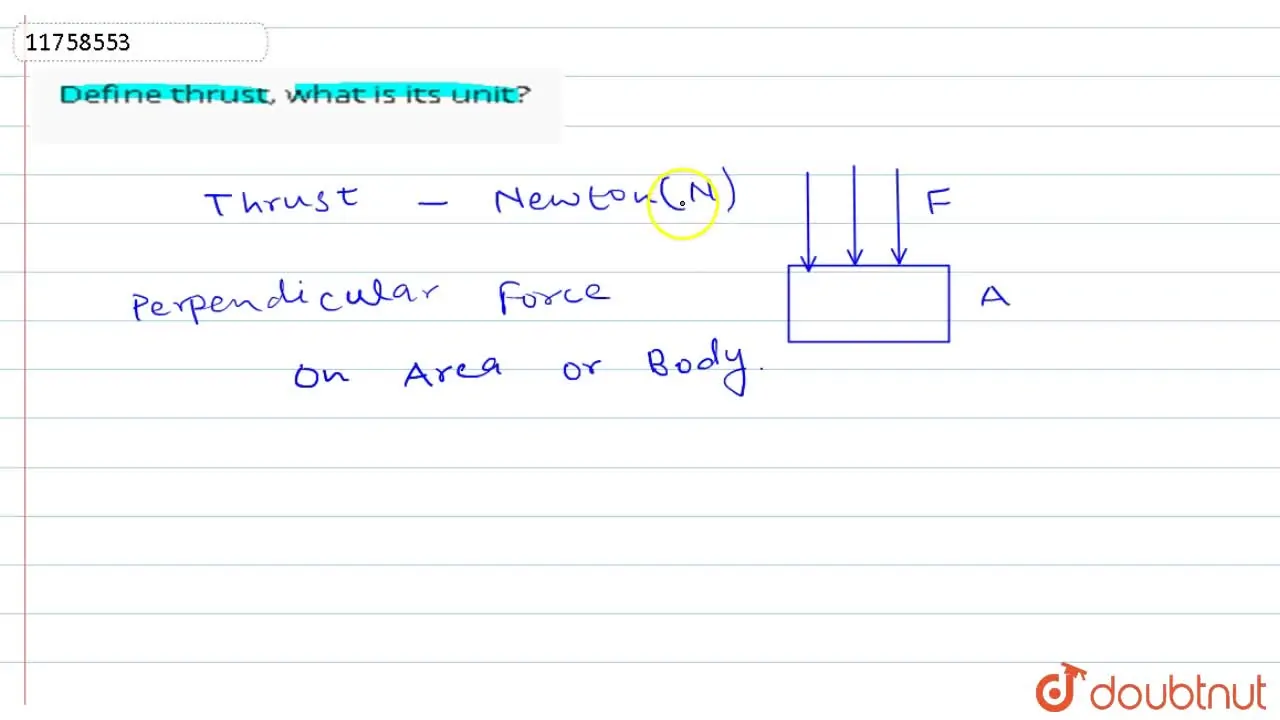 11758553
Define thrust, what is its unit?
Thrust - Newton (N)
F
Perpendicular Force
A
On Area or Body.
doubtnut